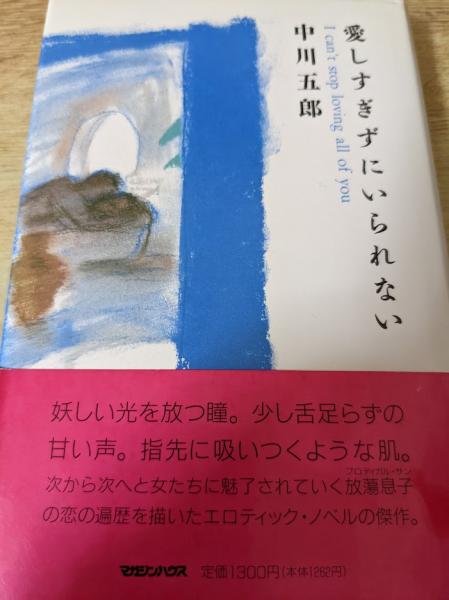 愛しすぎずにいられない
I can't stop loving all of you
中川五郎
妖しい光を放つ瞳。少し舌足らずの
甘い声。指先に吸いつくような肌。
プロディガル・サン
次から次へと女たちに魅了されていく放蕩息子
の恋の遍歴を描いたエロティック・ノベルの傑作。
マガジンハウス 定価1300円(本体1262円)